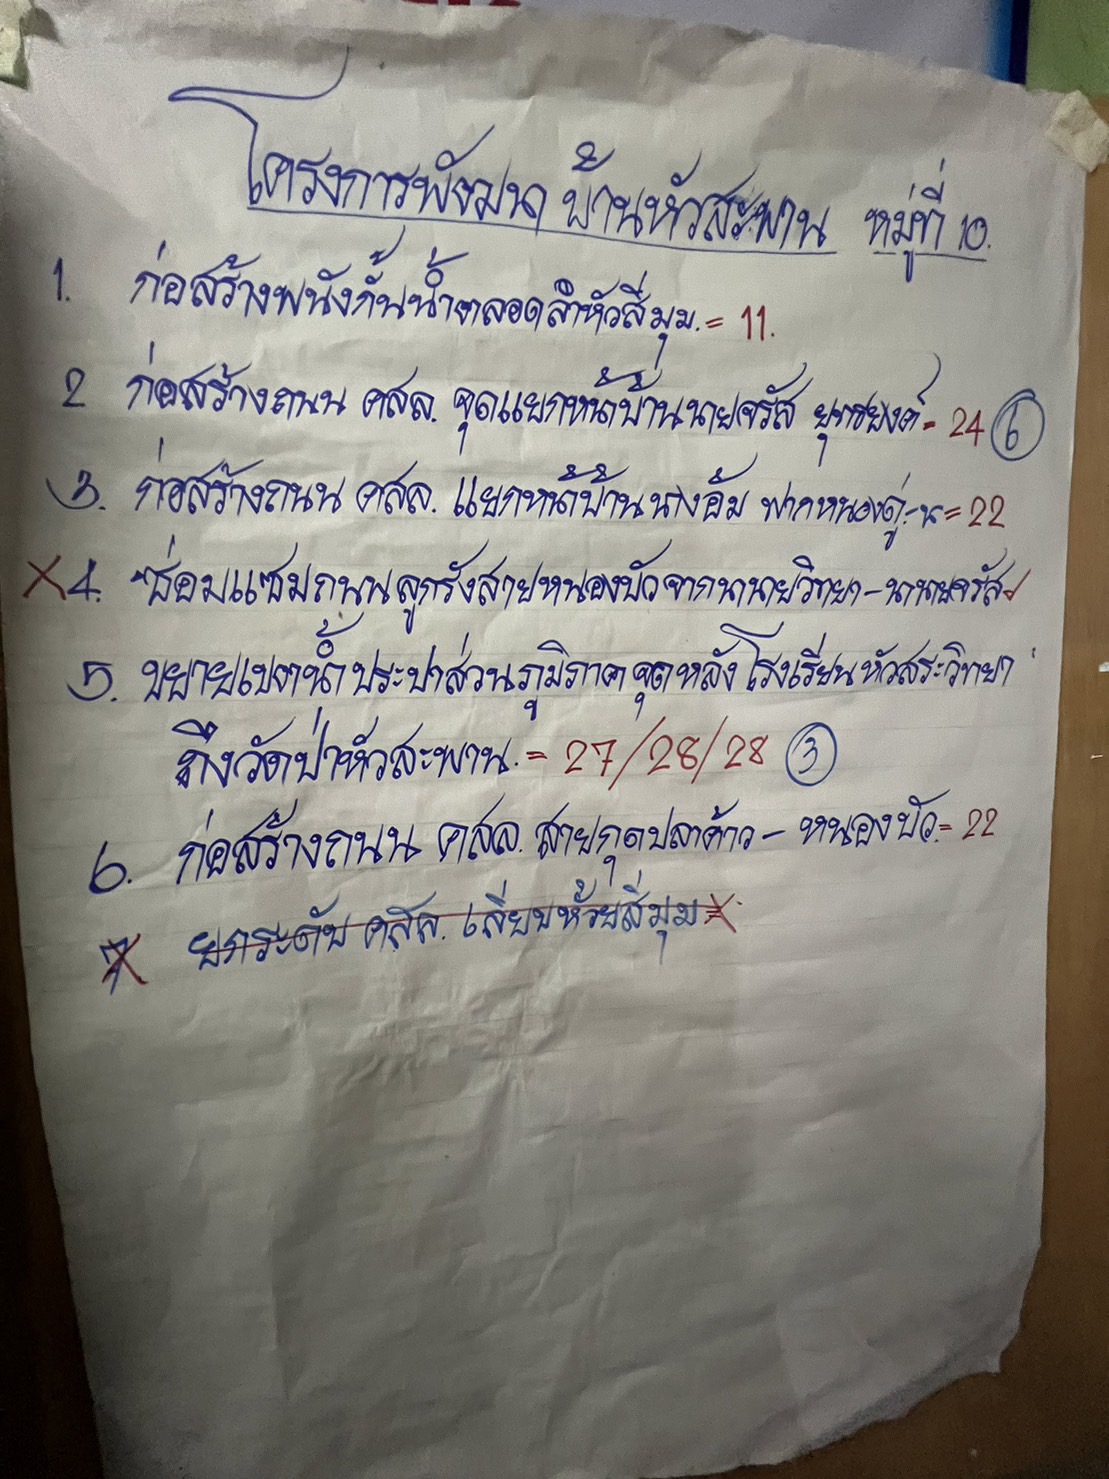 โครงการพัฒนา บ้านหัวสะพาน หมู่ที่ 10.
1. ก่อสร้างพนังกั้นน้ำตลอดลำห้วสี่มุม. = 11.
2 ก่อสร้างถนน คสล. จุดแยกหน้าบ้านนายจรัส ยุทธยงค์ = 24 6
3. ก่อสร้างถนน คสล. แยกหน้าบ้านนางอ้ม ฟากหนองคู = 22
X 4. ซ่อมแซมถนนลูกรังสายหนองบัวจากนานายวิทยา - นานายจรัส
5. ขยายเขตน้ำประปาส่วนภูมิภาค จุดหลังโรงเรียนหัวสระวิทยา
ถึงวัดป่าหัวสะพาน. = 27/28/28 3
6. ก่อสร้างถนน คสล. สายกุดปลาค้าว - หนองบัว. = 22
7 ยกระดับ คสล. เลียบห้วยสี่มุม X